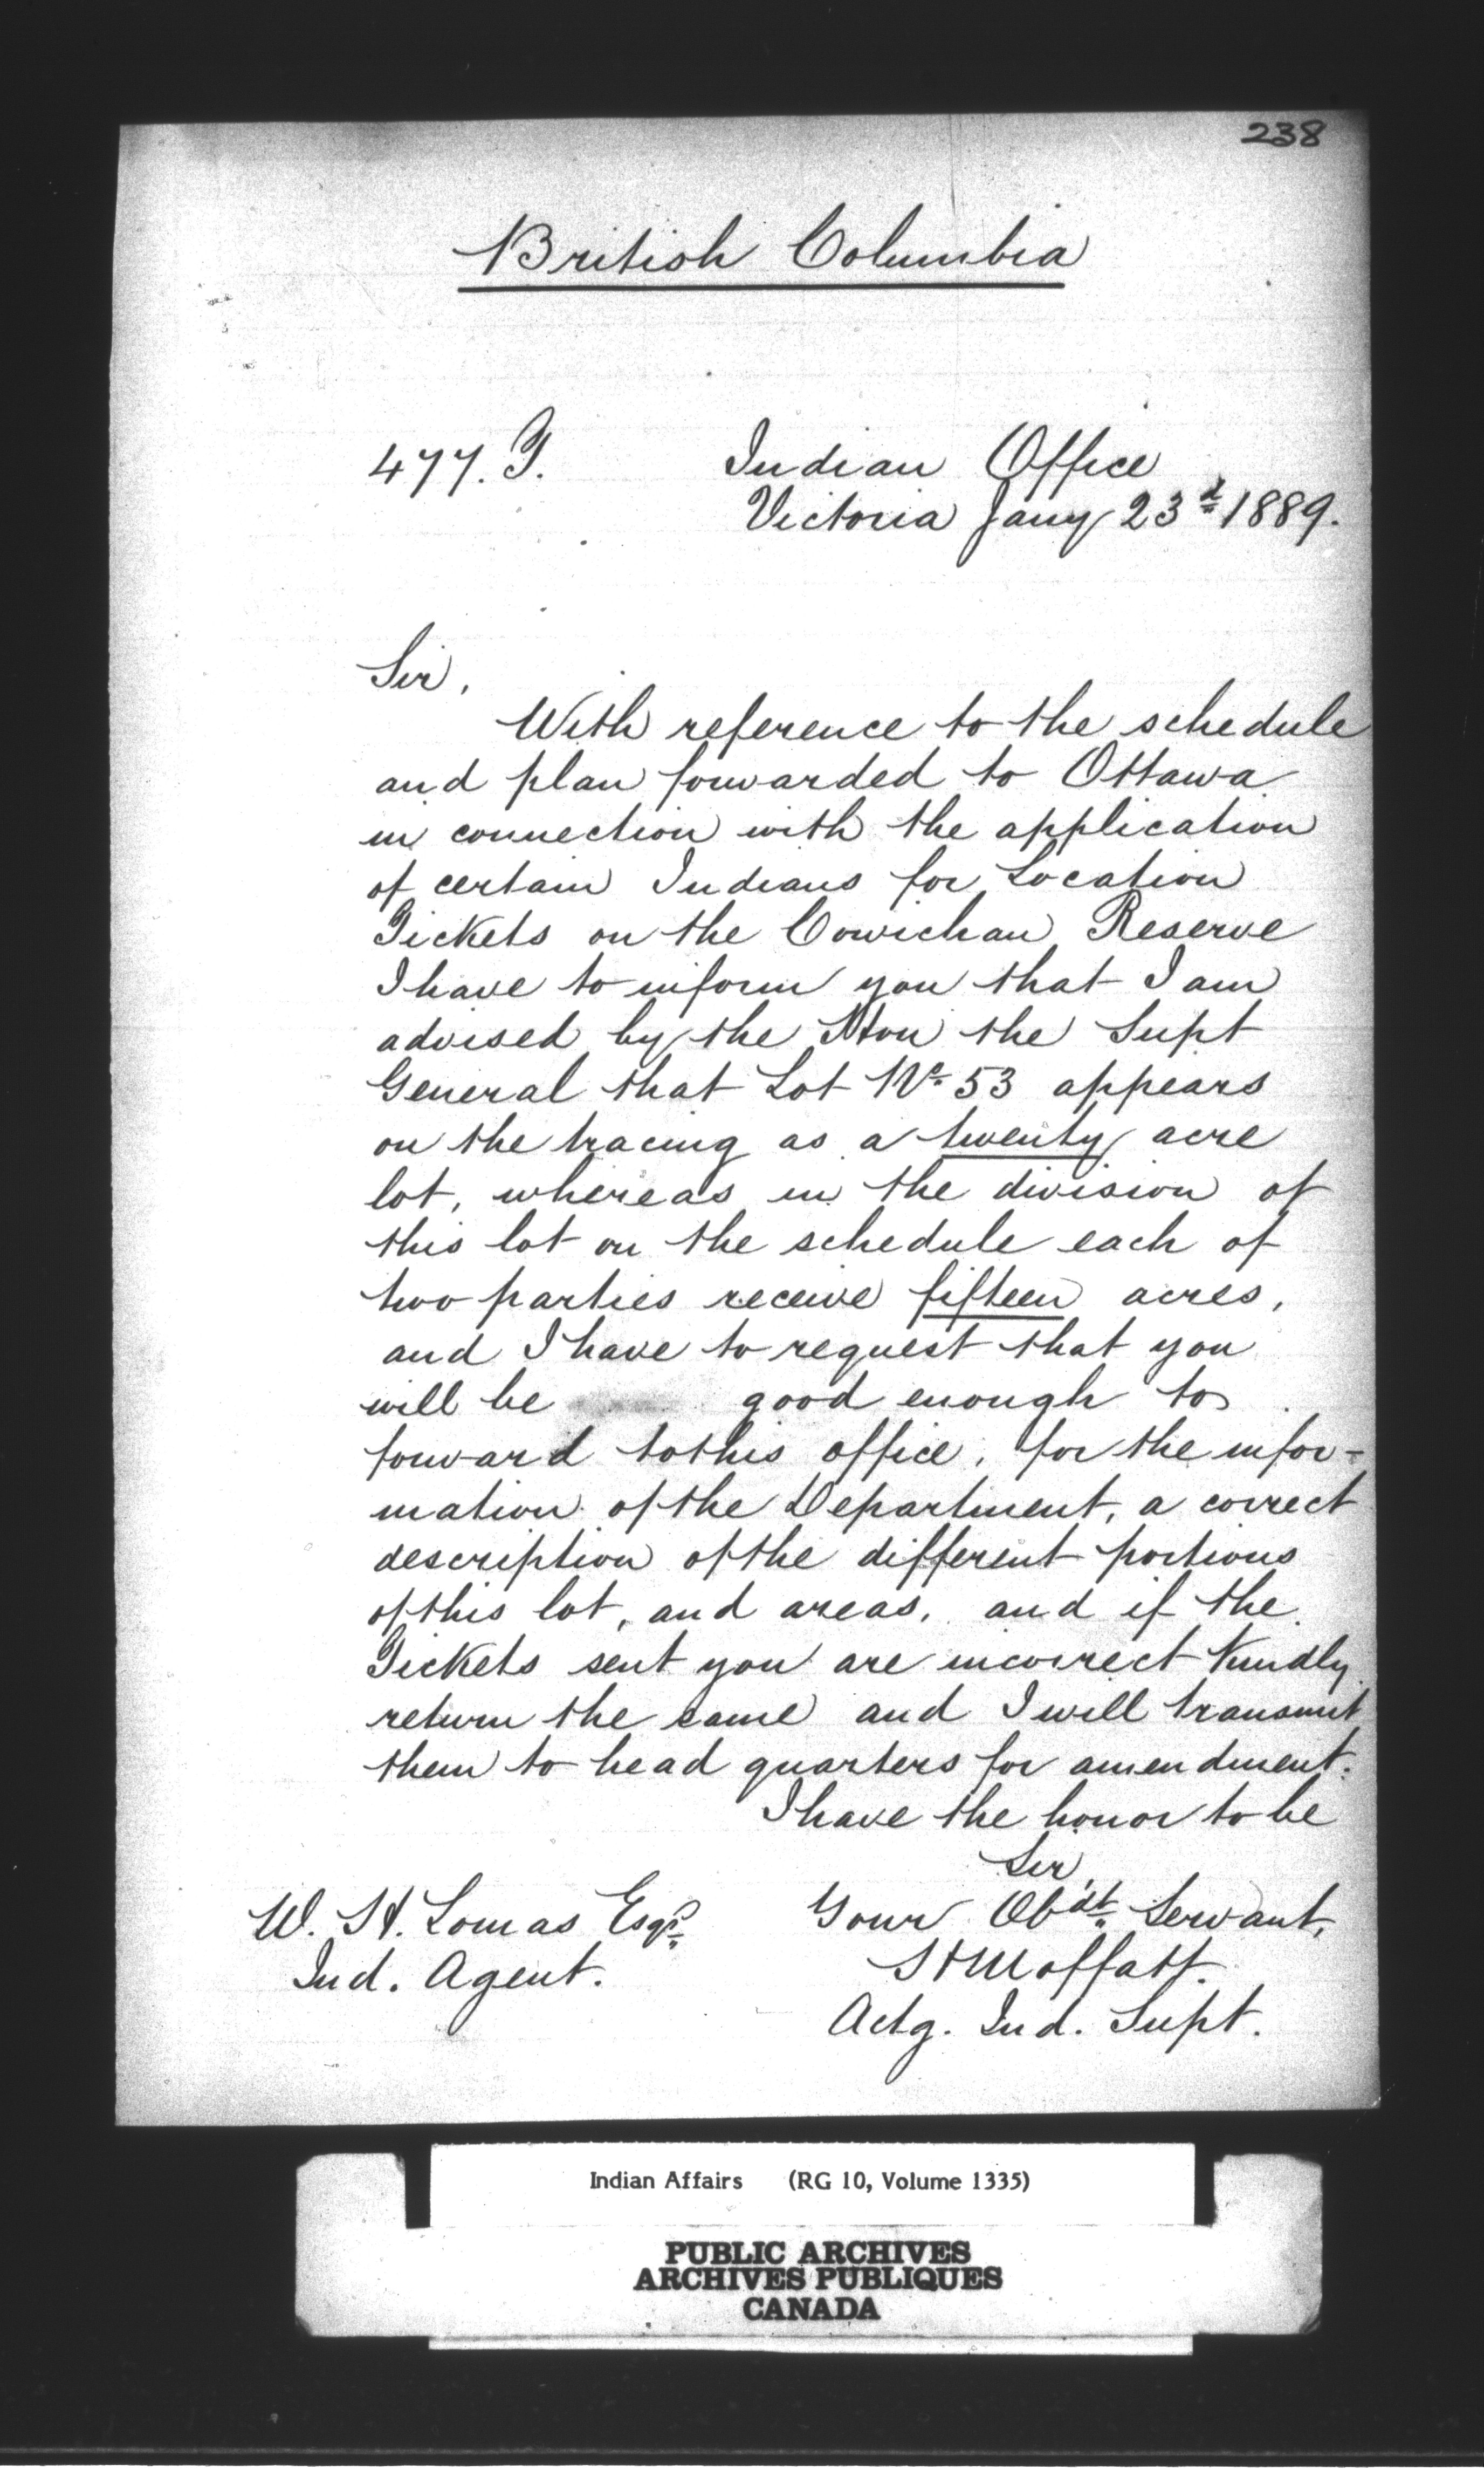 238
British Columbia
477. T.
Indian Office
Victoria Jany 23d 1889.
Sir,
With reference to the schedule
and plan forwarded to Ottawa
in connection with the application
of certain Indians for Location
Tickets on the Cowichan Reserve
I have to inform you that I am
advised by the Hon the Supt
General that Lot No 53 appears
on the tracing as a twenty acre
lot, whereas in the division of
this lot on the schedule each of
two parties receive fifteen acres,
and I have to request that you
will be good enough to
forward to this office, for the infor-
mation of the Department, a correct
description of the different portions
of this lot, and areas, and if the
Tickets sent you are incorrect kindly
return the same and I will transmit
them to head quarters for amendment.
I have the honor to be
Sir,
Your Obdt Servant,
H Moffatt.
Actg. Ind. Supt.
W. H. Lomas Esqr
Ind. Agent.
Indian Affairs (RG 10, Volume 1335)
PUBLIC ARCHIVES
ARCHIVES PUBLIQUES
CANADA